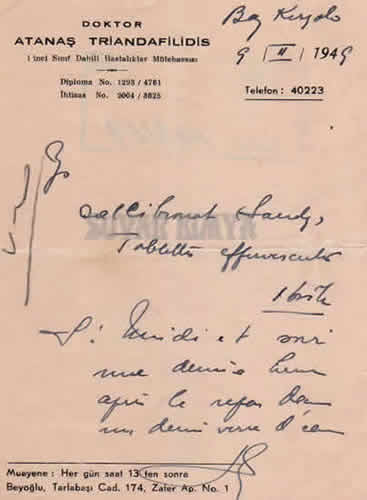 DOKTOR
ATANAŞ TRIANDAFILIDIS
1 inci Sınıf Dahili Hastalıklar Mütehassısı
Diploma No. 1293 / 4781
İhtisas No. 2004 / 8825
Bay
9 / II / 1949
Telefon : 40223
Rp
Calcibronat Sandoz
Tablettes effervescentes
1 boîte
S: Midi et soir
une demie heure
après le repas dans
un demi verre d'eau
Muayene : Her gün saat 13 ten sonra
Beyoğlu, Tarlabaşı Cad. 174, Zafer Ap. No. 1